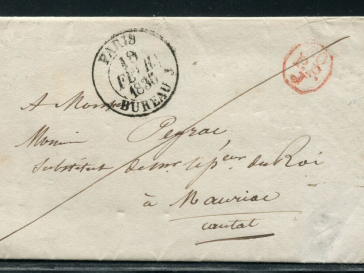 PARIS
19
FEVR
183
BUREAU
A Monsieur
Monsieur Peyrac
Substitut de Mr le pr eur du Roi
à Mauriac
cantal